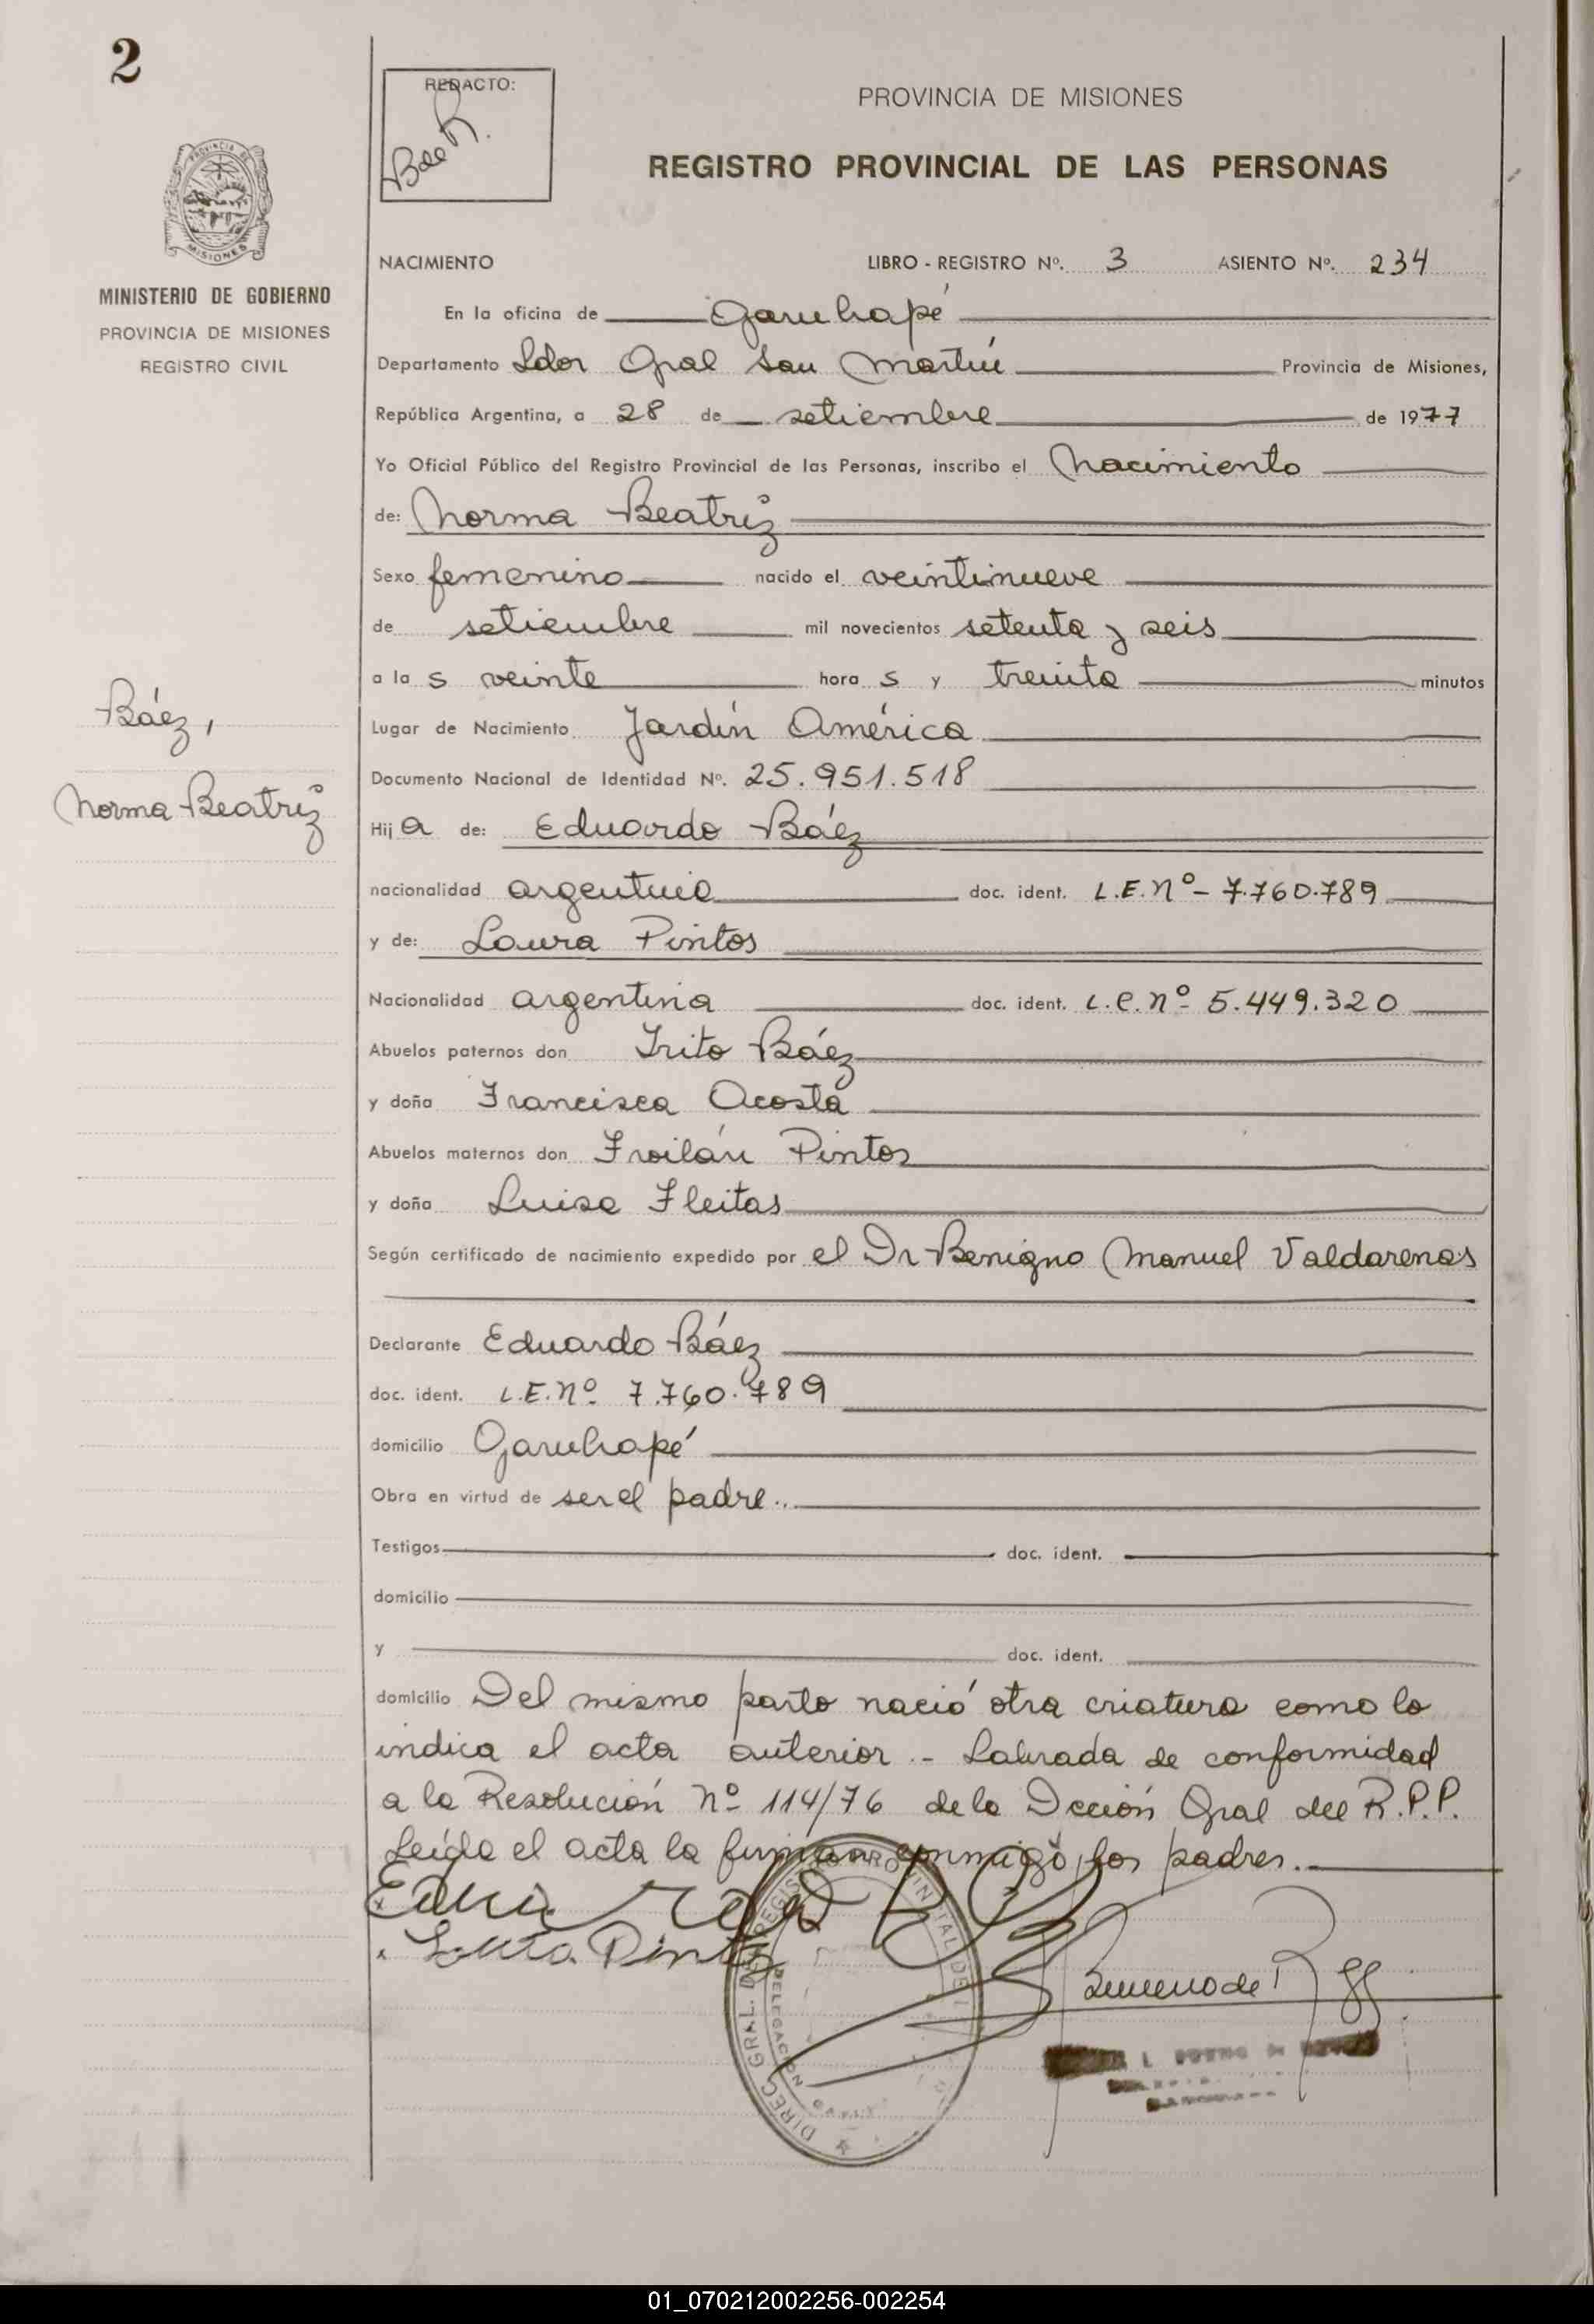 2
REDACTO:
PROVINCIA DE MISIONES
REGISTRO PROVINCIAL DE LAS PERSONAS
PROVINCIA DE
MISIONES
MINISTERIO DE GOBIERNO
PROVINCIA DE MISIONES
REGISTRO CIVIL
NACIMIENTO LIBRO - REGISTRO Nº. 3 ASIENTO Nº. 234
En la oficina de Garuhapé
Departamento Ldor Gral San Martín Provincia de Misiones,
República Argentina, a 28 de setiembre de 1977
Yo Oficial Público del Registro Provincial de las Personas, inscribo el Nacimiento
de: Norma Beatriz
Sexo femenino nacido el veintinueve
de setiembre mil novecientos setenta y seis
a la s veinte hora s y treinta minutos
Báez,
Norma Beatriz
Lugar de Nacimiento Jardín América
Documento Nacional de Identidad Nº. 25.951.518
Hij a de: Eduardo Báez
nacionalidad argentina doc. ident. L.E. Nº - 7.760.789
y de: Laura Pintos
Nacionalidad argentina doc. ident. L.C. Nº 5.449.320
Abuelos paternos don Irito Báez
y doña Francisca Acosta
Abuelos maternos don Froilán Pintos
y doña Luisa Fleitas
Según certificado de nacimiento expedido por el Dr Benigno Manuel Valdarenas
Declarante Eduardo Báez
doc. ident. L.E. Nº 7.760.789
domicilio Garuhapé
Obra en virtud de ser el padre..
Testigos doc. ident.
domicilio
y doc. ident.
domicilio Del mismo parto nació otra criatura como lo
indica el acta anterior.- Labrada de conformidad
a la Resolución Nº 114/76 de la Dcción Gral del R.P.P.
Leída el acta la firman conmigo, los padres.
Laura Pintos
DIREC. GRAL. DEL REGISTRO PROVINCIAL DE
DELEGACION
01_070212002256-002254